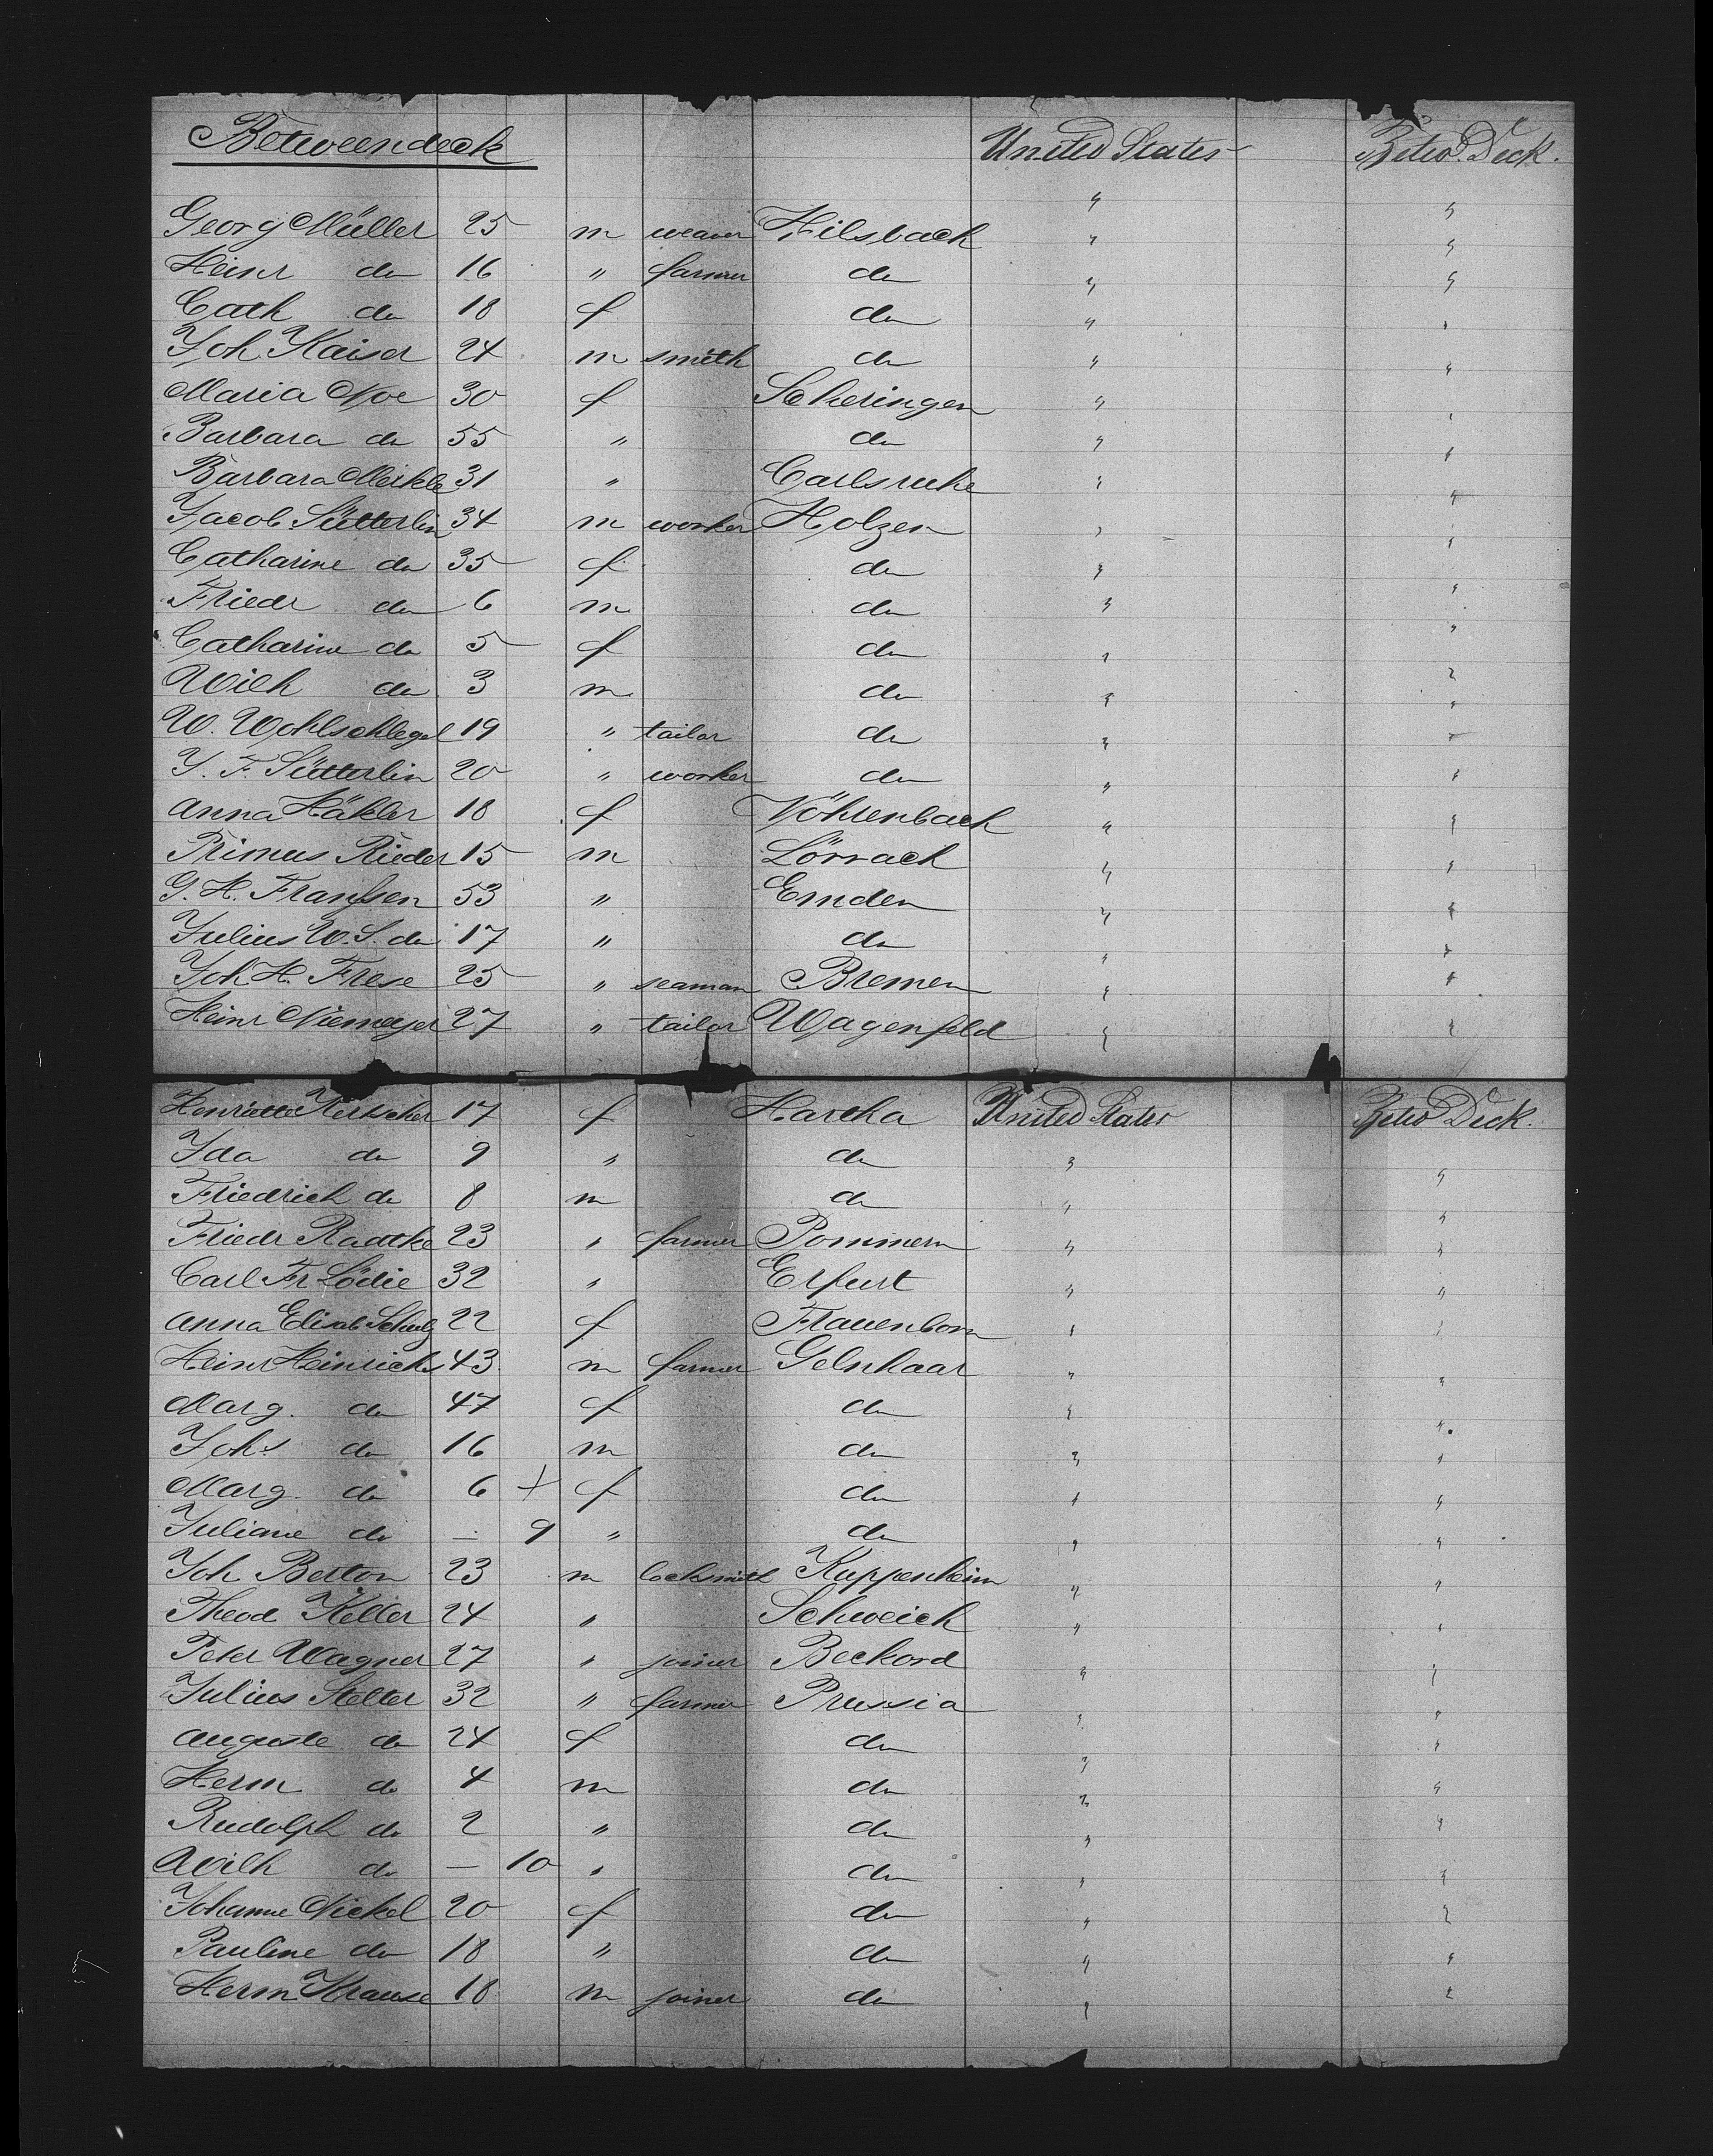 Betweendeck United States Betw. Deck.
Georg Müller 25 m weaver Hilsbach " "
Heinr do 16 " farmer do " "
Cath do 18 f do " "
Joh Kaiser 24 m smith do " "
Maria Noe 30 f Scheringen " "
Barbara do 55 " do " "
Barbara Merkle 31 " Carlsruhe " "
Jacob Sütterlin 34 m worker Holzen " "
Catharine do 35 f do " "
Friedr do 6 m do " "
Catharine do 5 f do " "
Wilh do 3 m do " "
W. Wohlschlegel 19 " tailor do " "
J. F. Sütterlin 20 " worker do " "
Anna Häkler 18 f Vöhrenbach " "
Primus Rieder 15 m Lörrach " "
G. H. Franssen 53 " Emden " "
Julius W. S. do 17 " do " "
Joh H. Frese 25 " seaman Bremen " "
Heinr Niemeyer 27 " tailor Wagenfeld " "
Henriette Kertscher 17 f Hartha United States Betw Deck.
Ida do 9 " do " "
Friedrich do 8 m do " "
Friedr Radtke 23 " farmer Pommern " "
Carl Fr Lödie 32 " Erfurt " "
Anna Elisab Schulz 22 f Frauenborn " "
Heinr Heinrichs 43 m farmer Gelnhaar " "
Marg. do 47 f do " "
Johs do 16 m do " "
Marg. do 6 + f do " "
Juliane do — 9 " do " "
Joh Berton 23 m locksmith Kuppenheim " "
Theod Keller 24 " Schweich " "
Peter Wagner 27 " joiner Beckord " "
Julius Stelter 32 " farmer Prussia " "
Auguste do 24 f do " "
Herm do 4 m do " "
Rudolph do 2 " do " "
Wilh do — 10 " do " "
Johanne Nickel 20 f do " "
Pauline do 18 " do " "
Herm Krause 18 m joiner do " "